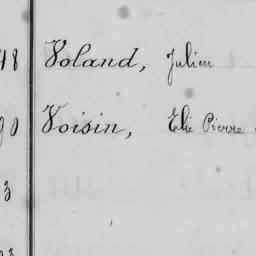 48 Voland, Julien
90 Voisin, Elie Pierre
3